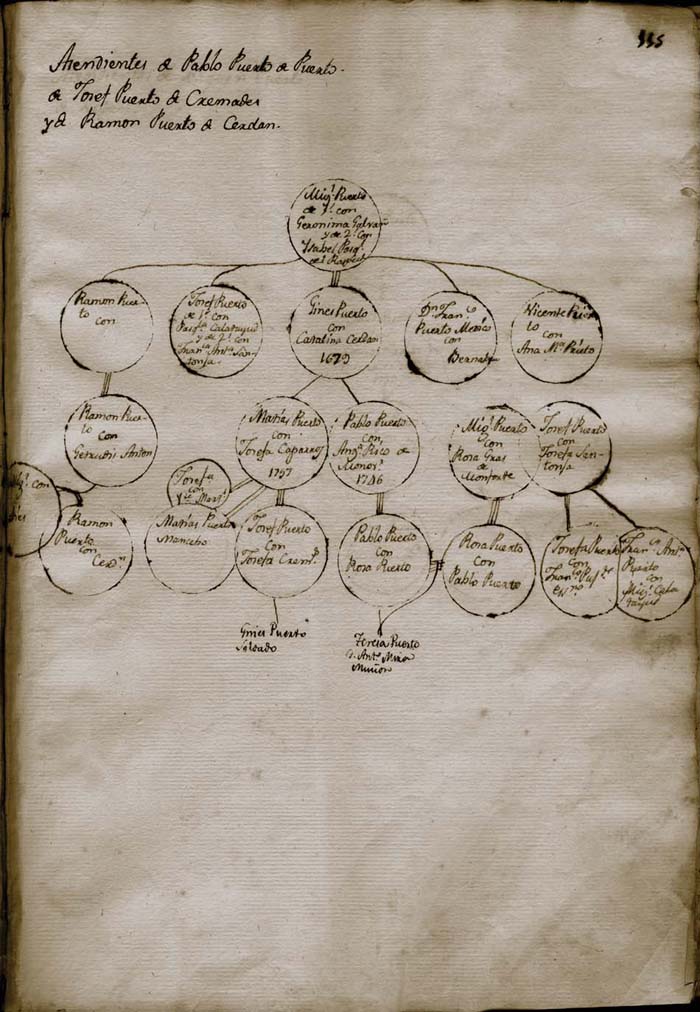 115
Asendientes de Pablo Puerto de Puerto.
de Josef Puerto de Cremades
y de Ramon Puerto de Cerdan.
Migl. Puerto
de 1º. con
Geronima Galvañ
y de 2º. con
Ysabel
Ramon Puer-
to con
Josef Puerto
de 1º. con
Calatayud
y de 2º. con
Antª. San-
tonja.
Gines Puerto
con
Catalina Cerdan
1679
Dn. Franco.
Puerto Medico
con
Bernabeu
Vicente Puer-
to
con
Ana Mª. Prieto
Ramon Puer-
to
con
Getrudis Anton
Matias Puerto
con
Josefa Caparros
1757
Pablo Puerto
con
Angª. Pico de
Monovr.
1746
Migl. Puerto
con
Rosa Gras
de
Monforte
Josef Puerto
con
Josefa San-
tonja
Josefa
con
con
Ramon
Puerto
con
Cerdn.
Matias Puerto
Mancebo
Josef Puerto
con
Josefa Cremds.
Pablo Puerto
con
Rosa Puerto
Rosa Puerto
con
Pablo Puerto
Josefa Puerto
con
Franco.
Franca. Antª.
Puerto
con
Migl. Cala
tayud
Gines Puerto
Soldado
Teresa Puerto
Antº. Mira